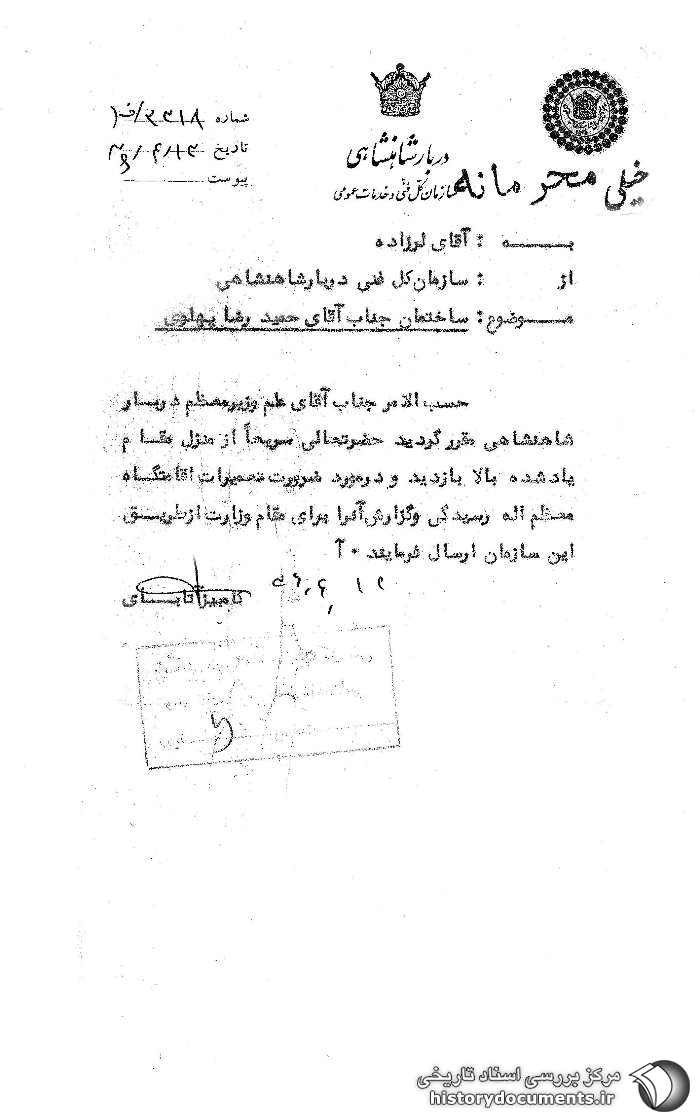 شماره ۲۳۱۸/ف
تاریخ
پیوست
دربار شاهنشاهی
سازمان کل فنی و خدمات عمومی
خیلی محرمانه
به : آقای لرزاده
از : سازمان کل فنی دربار شاهنشاهی
موضوع : ساختمان جناب آقای حمید رضا پهلوی
حسب الامر جناب آقای علم وزیر معظم دربار
شاهنشاهی مقرر گردید حضرتعالی سریعاً از منزل مقام
یاد شده بالا بازدید و در مورد ضرورت تعمیرات اقامتگاه
معظم اله رسیدگی و گزارش آنرا برای مقام وزارت از طریق
این سازمان ارسال فرمایند ۰ آ
کامبیز آتابای
مرکز بررسی اسناد تاریخی
historydocuments.ir